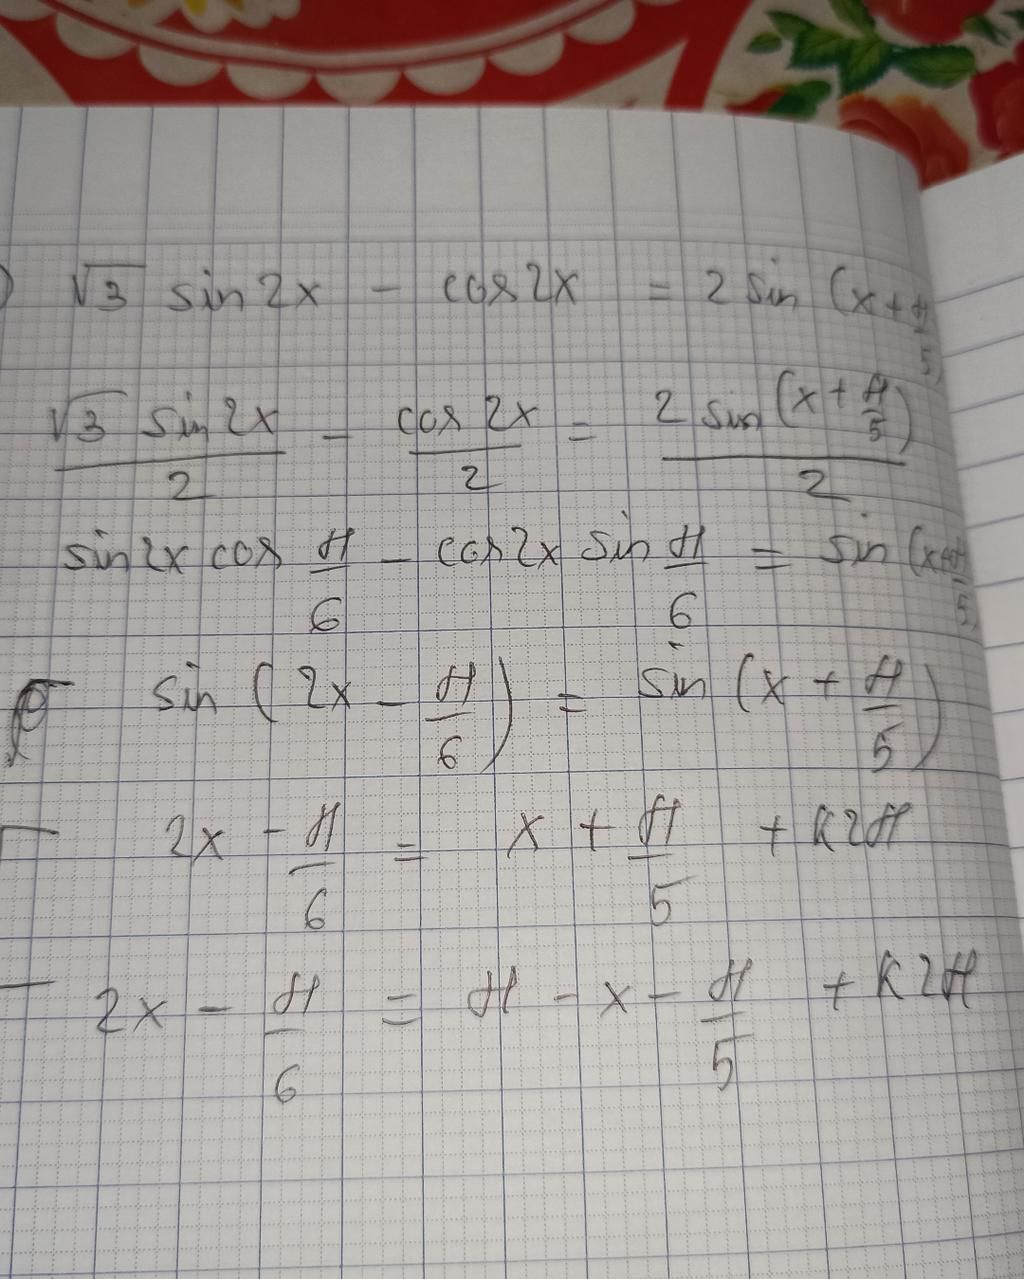 ) √3 sin 2x - cos 2x = 2 sin (x + π/5)
√3 sin 2x / 2 - cos 2x / 2 = 2 sin (x + π/5) / 2
sin 2x cos π/6 - cos 2x sin π/6 = sin (x + π/5)
sin (2x - π/6) = sin (x + π/5)
2x - π/6 = x + π/5 + k2π
2x - π/6 = π - x - π/5 + k2π